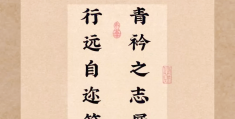 青衿之志履
行远自迩笃